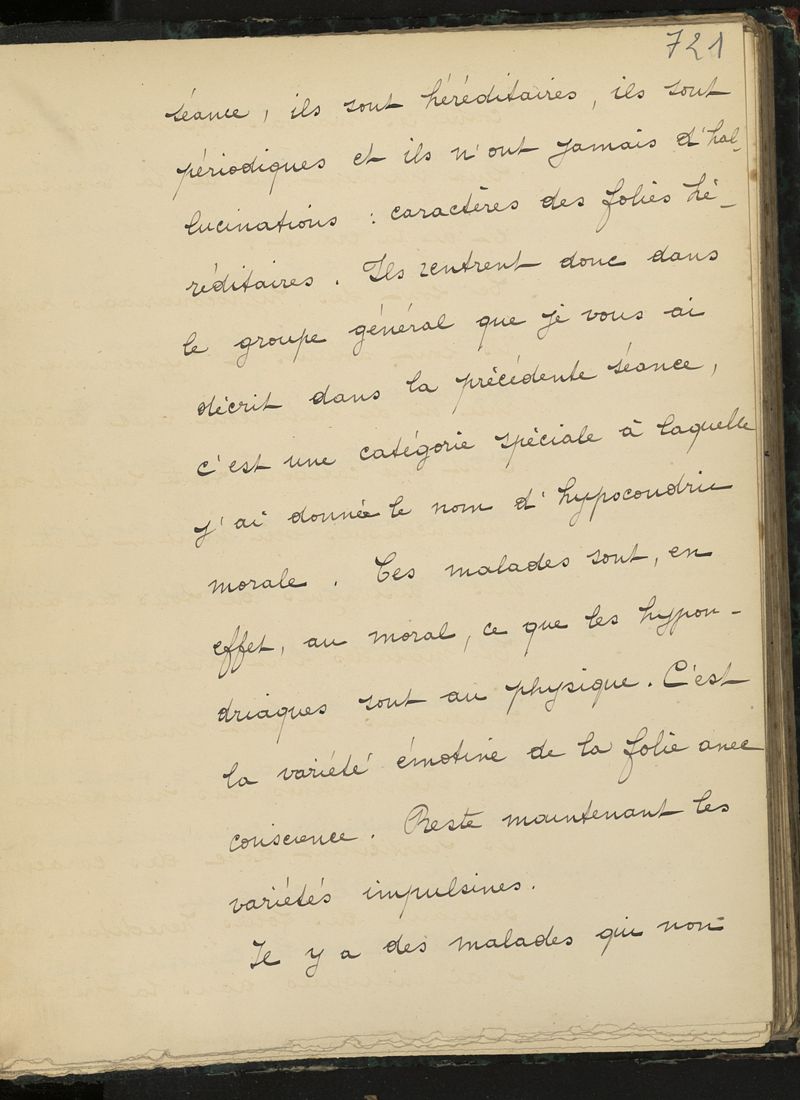 721
séance, ils sont héréditaires, ils sont
périodiques et ils n'ont jamais d'hal-
lucinations : caractères des folies hé-
réditaires. Ils rentrent donc dans
le groupe général que je vous ai
décrit dans la précédente séance,
c'est une catégorie spéciale à laquelle
j'ai donnée le nom d'hypocondrie
morale. Ces malades sont, en
effet, au moral, ce que les hypon-
driaques sont au physique. C'est
la variété émotive de la folie avec
conscience. Reste maintenant les
variétés impulsives.
Il y a des malades qui non-